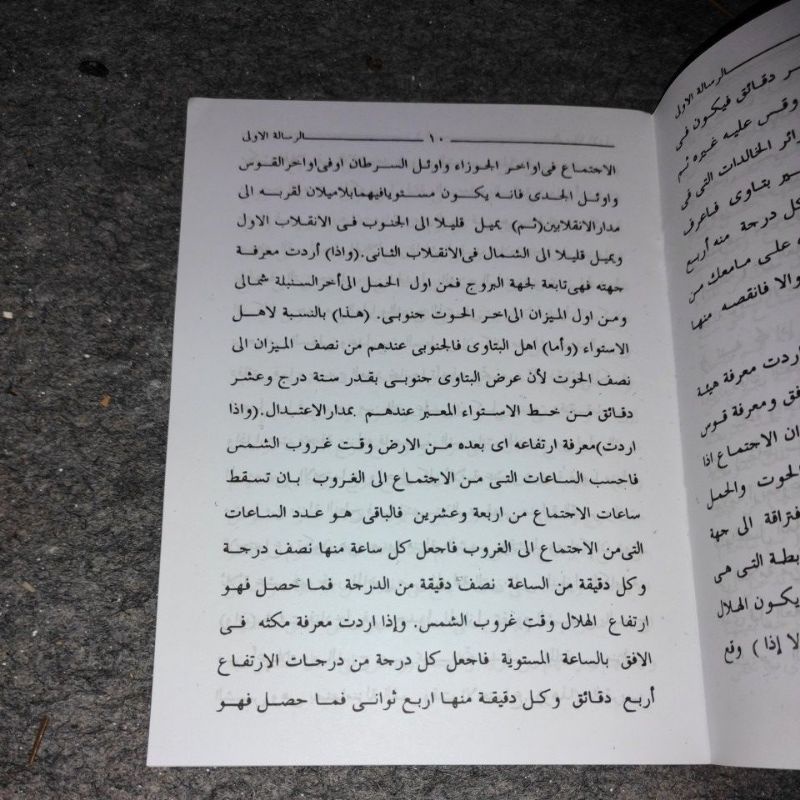 الرسالة الاولى ١٠
الاجتماع فى اواخر الجوزاء واوئل السرطان اوفى اواخر القوس
واوئل الجدى فانه يكون مستويا فيهما بلاميلان لقربه الى
مدار الانقلابين (ثم) يميل قليلا الى الجنوب فى الانقلاب الاول
ويميل قليلا الى الشمال فى الانقلاب الثانى. (واذا) أردت معرفة
جهته فهى تابعة لجهة البروج فمن اول الحمل الى أخر السنبلة شمالى
ومن اول الميزان الى اخر الحوت جنوبى. (هذا) بالنسبة لاهل
الاستواء (وأما) اهل البتاوى فالجنوبى عندهم من نصف الميزان الى
نصف الحوت لأن عرض البتاوى جنوبى بقدر ستة درج وعشر
دقائق من خط الاستواء المعبر عندهم بمدار الاعتدال. (واذا
اردت) معرفة ارتفاعه اى بعده من الارض وقت غروب الشمس
فاحسب الساعات التى من الاجتماع الى الغروب بان تسقط
ساعات الاجتماع من اربعة وعشرين فالباقى هو عدد الساعات
التى من الاجتماع الى الغروب فاجعل كل ساعة منها نصف درجة
وكل دقيقة من الساعة نصف دقيقة من الدرجة فما حصل فهو
ارتفاع الهلال وقت غروب الشمس. وإذا اردت معرفة مكثه فى
الافق بالساعة المستوية فاجعل كل درجة من درجات الارتفاع
أربع دقائق وكل دقيقة منها اربع ثوانى فما حصل فهو
الرسالة الاولى
ر دقائق فيكون فى
وقس عليه غيره ثم
ائر الخالدات التى فى
ير بتاوى فاعرف
كل درجة منه أربع
على مامعك من
والا فانقصه منها
اردت معرفة هيئة
فق ومعرفة قوس
ان الاجتماع اذا
الحوت والحمل
فتراقة الى جهة
بطة التى هى
يكون الهلال
لا إذا ) وقع